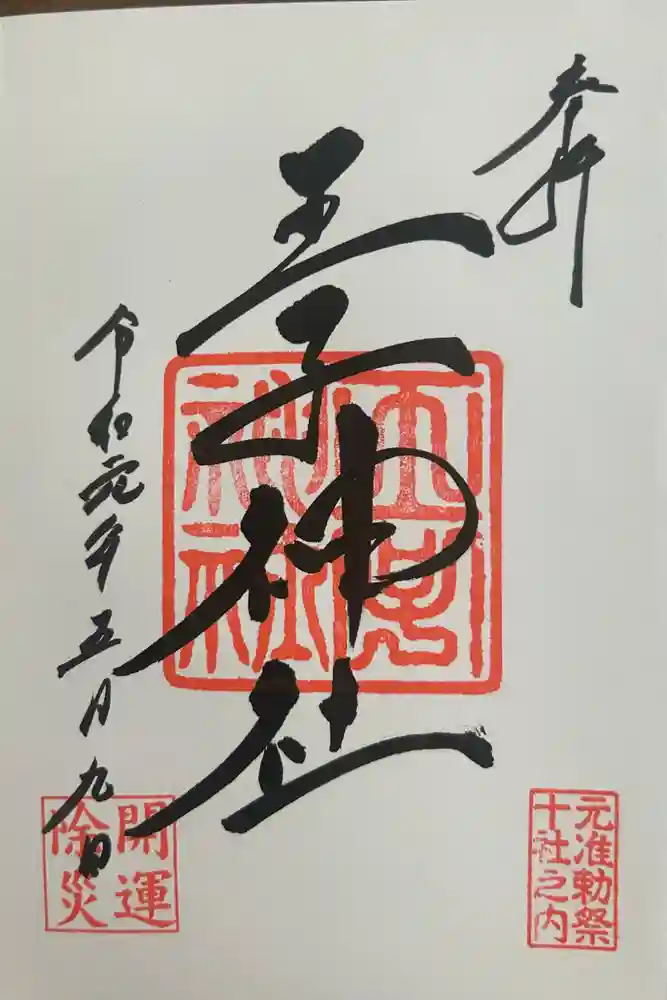 奉拝
王子神社
王子
神社
令和元年五月九日
開運
除災
元准勅祭
十社之内